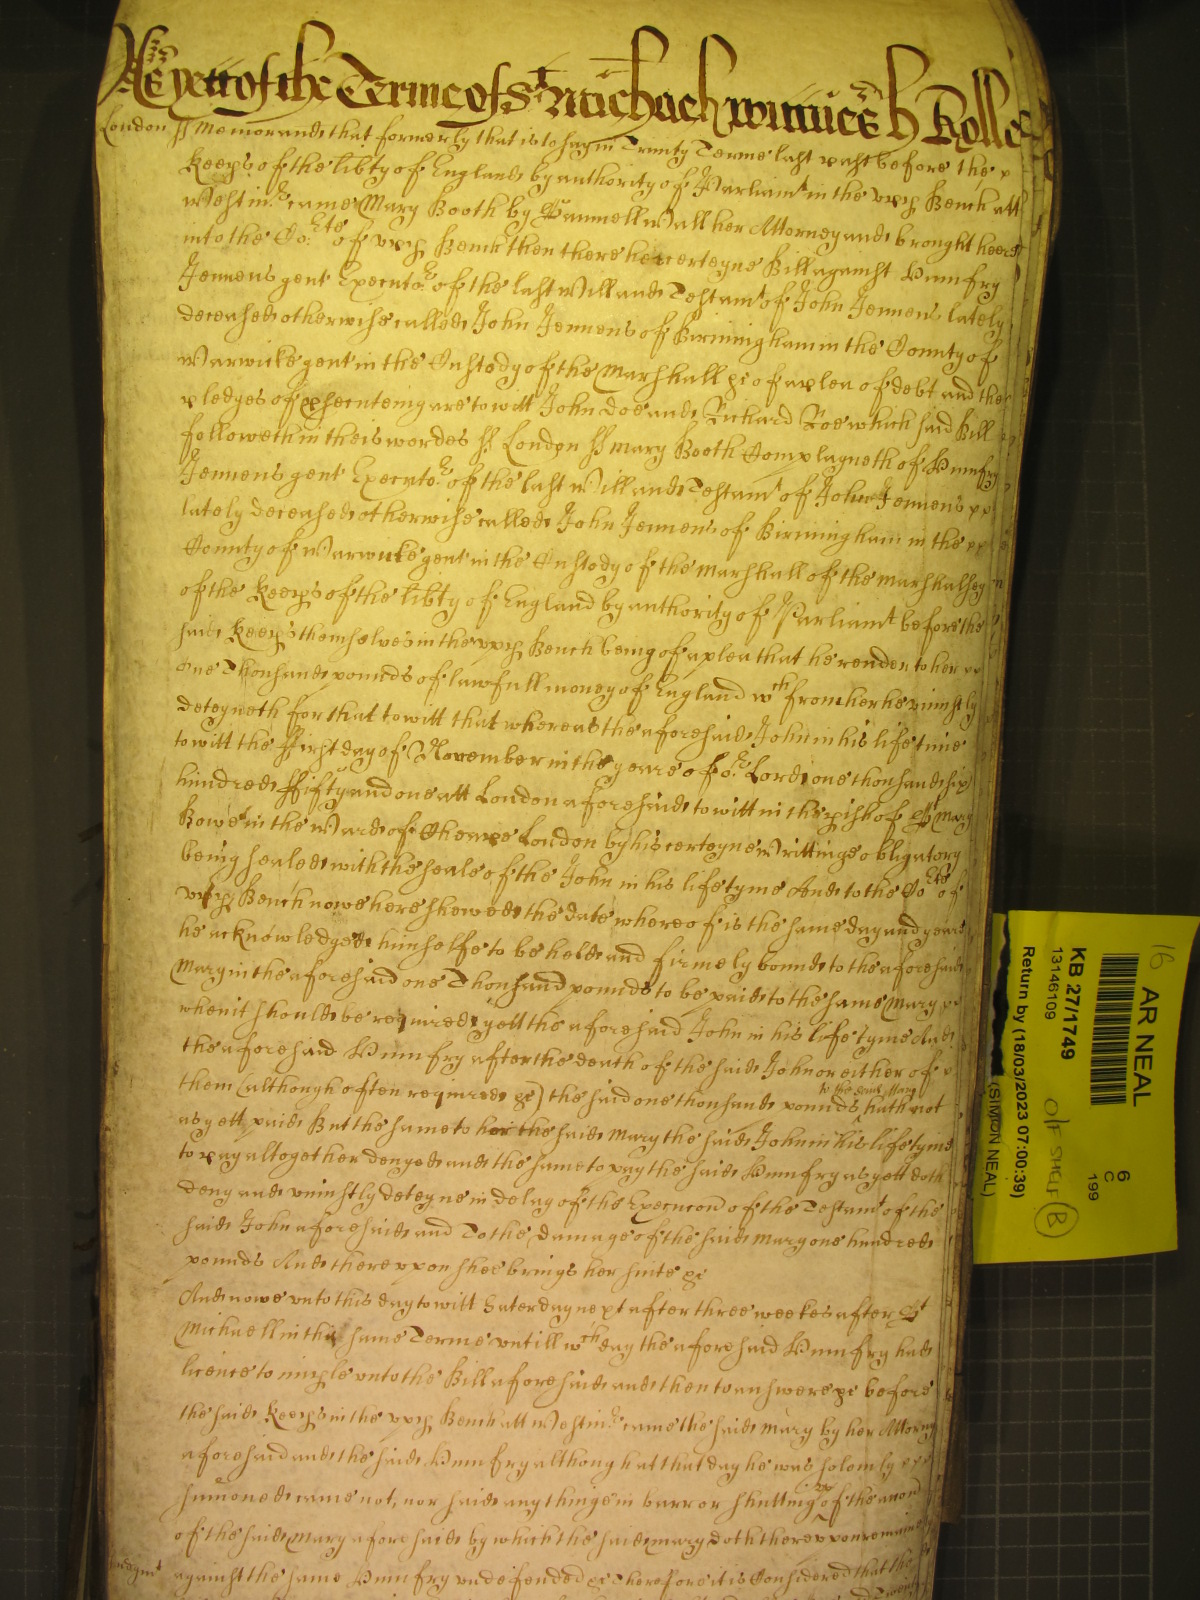 As yett of the Terme of St Michaell wittnes h Rolle
London ss Memorand that formerly that is to say in Trinity Terme last past before the
Keeps of the libty of England by authority of Parliamt in the upp Bench att
Westmr came Mary Booth by Wall her Attorney and brought heere
into the Corte of upp Bench then there her certeyne Bill against Humfry
Jennens gent Executor of the last Will and Testamt of John Jennens lately
deceased otherwise called John Jennens of Birmingham in the County of
Warwicke gent in the Custody of the Marshall &c of a plea of debt and ther
pledges of psecuteing are to witt John Doe and Richard Roe which said Bill
followeth in theis wordes ss London ss Mary Booth Complayneth of Humfry
Jennens gent Executor of the last Will and Testamt of John Jennens
lately deceased otherwise called John Jennens of Birmingham in the
County of Warwicke gent in the Custody of the Marshall of the Marshalsey
of the Keeps of the libty of England by authority of Parliamt before the
said Keeps themselves in the upp Bench being of a plea that he render to her
one Thousand pounds of lawfull money of England wch from her he uniustly
deteyneth for that to witt that whereas the aforesaid John in his life time
to witt the ffirst day of November in the yeare of or Lord one thousand six
hundred ffifty and one att London aforesaid to witt in the pish of St Mary
Bowe in the Ward of Cheape London by his certeyne Writtinge obligatory
being sealed with the seale of the John in his life tyme And to the Corte of
upp Bench nowe here shewed the date whereof is the same day and yeare
he acknowledged himselfe to be held and firmely bound to the aforesaid
Mary in the aforesaid one Thousand pounds to be paid to the same Mary
when it should be required yett the aforesaid John in his life tyme And
the aforesaid Humfry after the death of the said John or either of
them (although often required &c) the said one thousand pounds to the said Mary hath not
as yett paid But the same to her the said Mary the said John in his life tyme
to pay altogether denyed and the same to pay the said Humfry as yett doth
deny and uniustly deteyne in delay of the Execucon of the Testamt of the
said John aforesaid and To the damage of the said Mary one hundred
pounds And thereupon shee brings her suite &c
And nowe unto this day to witt Saterday next after three weekes after St
Michaell in this same Terme untill wch day the aforesaid Humfry had
licence to imple unto the Bill aforesaid and then to answere &c before
the said Keeps in the upp Bench att Westmr came the said Mary by her Attorny
aforesaid and the said Humfry although att that day he was solemly
sumoned came not, nor said any thinge in barr or of the accon
of the said Mary aforesaid by which the said Mary doth thereupon remaine
against the same Humfry undefended &c Therefore it is Considered that the
AR NEAL
16
6
C
199
KB 27/1749
13146109
Return by (18/03/2023 07:00:39)
(SIMON NEAL)
B